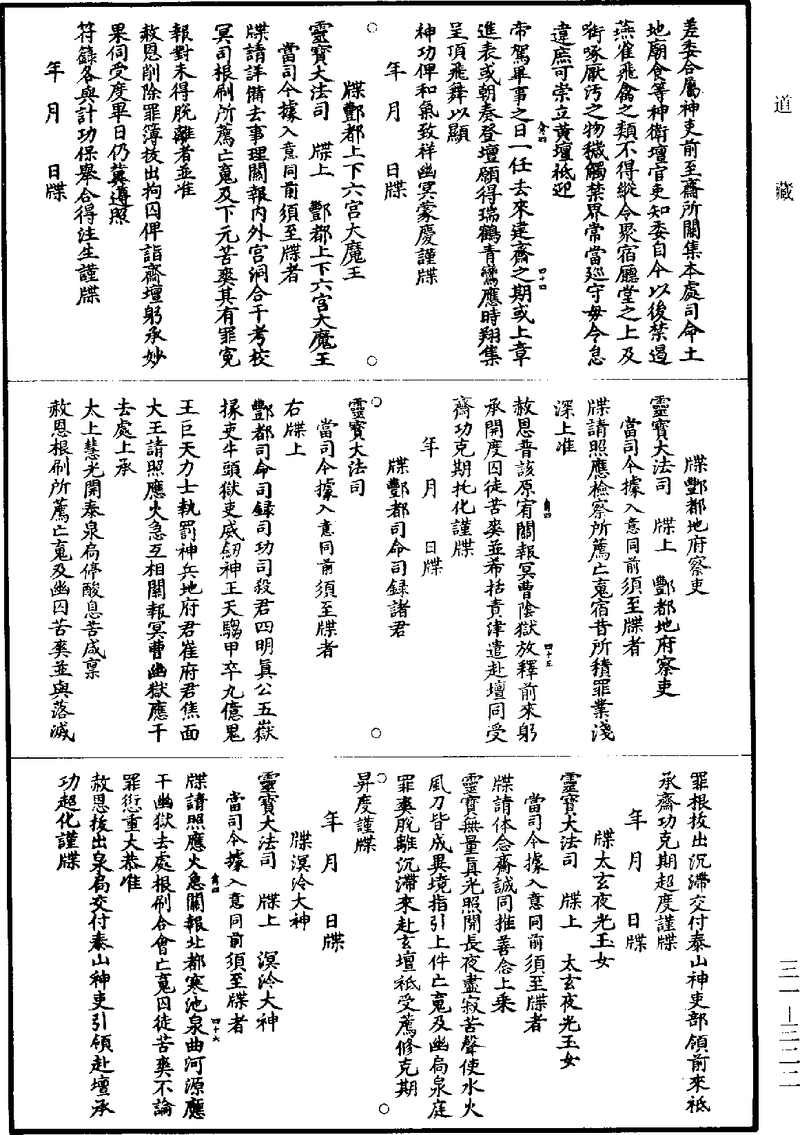 道藏
差委合屬神吏前至齋所關集本處司命土
地廟食等神衛壇官吏知委自今以後禁遏
燕雀飛禽之類不得縱令眾宿廳堂之上及
銜啄厭污之物穢觸禁界常當巡守毋令息
違庶可崇立黃壇祗迎
帝駕畢事之日一任去來建齋之期或上章
進表或朝奏登壇願得瑞鶴青鸞應時翔集
呈頂飛舞以顯
神功俾和氣致祥幽冥蒙慶謹牒
年 月 日牒
牒酆都上下六宮大魔王
靈寶大法司 牒上 酆都上下六宮大魔王
當司今據入意同前須至牒者
牒請詳備去事理關報內外宮洞合干考校
冥司根刷所薦亡䰟及下元苦爽其有罪冤
報對未得脫離者並准
赦恩削除罪簿拔出拘囚俾詣齋壇躬承妙
果伺受度畢日仍冀遵照
符籙各與計功保舉合得注生謹牒
年 月 日牒
牒酆都地府察吏
靈寶大法司 牒上 酆都地府察吏
當司今據入意同前須至牒者
牒請照應檢察所薦亡䰟宿昔所積罪業淺
深上准
赦恩普該原宥關報冥曹陰獄放釋前來躬
承開度囚徒苦爽並希括責津遣赴壇同受
齋功克期托化謹牒
年 月 日牒
牒酆都司命司錄諸君
靈寶大法司
當司今據入意同前須至牒者
右牒上
酆都司命司錄司功司殺君四明真公五嶽
掾吏牛頭獄吏威劒神王天騶甲卒九億鬼
王巨天力士執罰神兵地府君崔府君焦面
大王請照應火急互相關報冥曹幽獄應干
去處上承
太上慧光開泰泉扃停酸息苦咸稟
赦恩根刷所薦亡䰟及幽囚苦爽並與落滅
罪根拔出沉滯交付泰山神吏部領前來祗
承齋功克期超度謹牒
年 月 日牒
牒太玄夜光玉女
靈寶大法司 牒上 太玄夜光玉女
當司今據入意同前須至牒者
牒請体念齋誠同推善念上乘
靈寶無量真光照開長夜盡寂苦聲使水火
風刀皆成異境指引上件亡䰟及幽扃泉庭
罪爽脫離沉滯來赴玄壇祗受薦修克期
昇度謹牒
年 月 日牒
牒溟泠大神
靈寶大法司 牒上 溟泠大神
當司今據入意同前須至牒者
牒請照應火急關報北都寒池泉曲河源應
干幽獄去處根刷合會亡䰟囚徒苦爽不論
罪愆重大恭准
赦恩拔出泉扃交付泰山神吏引領赴壇承
功超化謹牒
三一—三二二